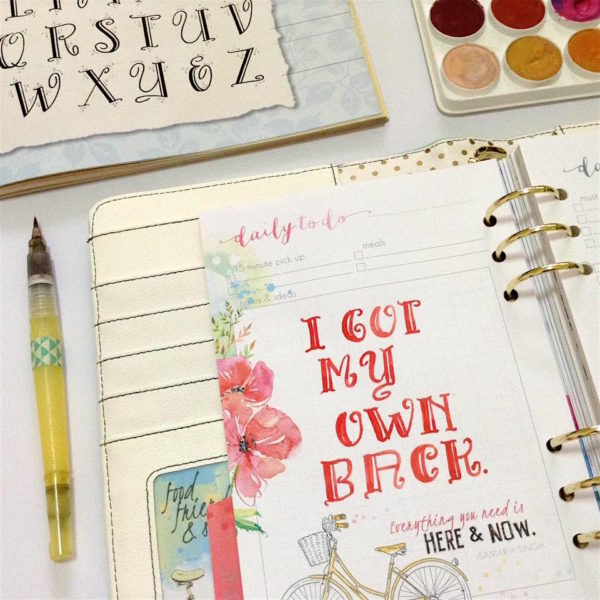 Q R S T U V
W X Y & Z
daily to do
15 minute pick up
meals
notes & ideas
I GOT
MY
OWN
BACK.
Everything you need is
HERE & NOW.
-SAMARA SINGH
food,
& s
must